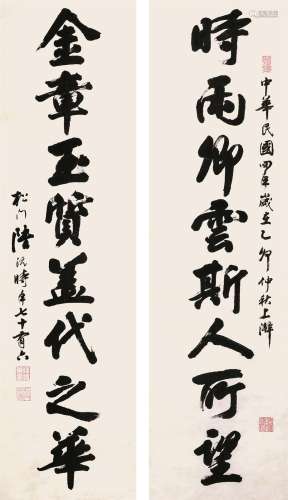 時雨卿雲斯人所望
中華民國四年歲在乙卯仲秋上澣
金章玉寶盖代之華
松門陸沅時年七十有六